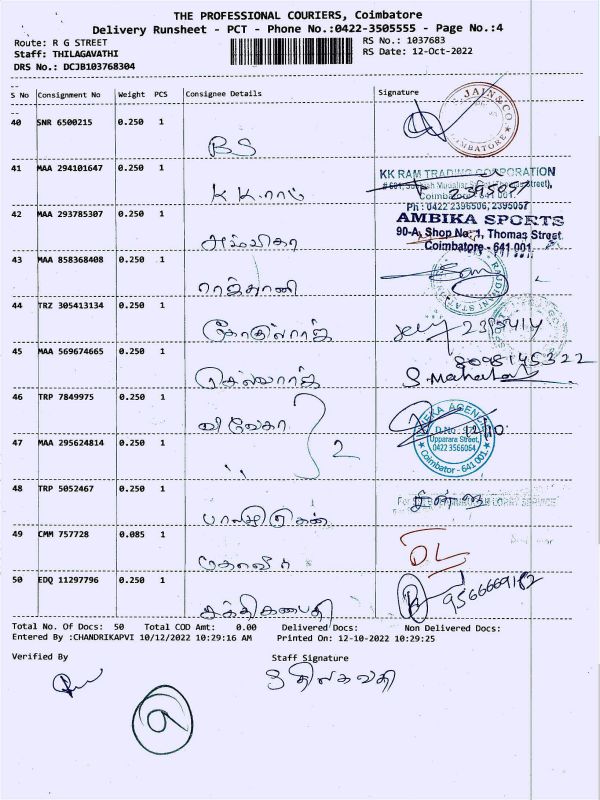 THE PROFESSIONAL COURIERS, Coimbatore
Delivery Runsheet - PCT - Phone No.:0422-3505555 - Page No.:4
Route: R G STREET
RS No.: 1037683
Staff: THILAGAVATHI
RS Date: 12-Oct-2022
DRS No.: DCJB103768304
S No Consignment No Weight PCS Consignee Details Signature
JAIN & CO.
COIMBATORE
40 SNR 6500215 0.250 1
BS
41 MAA 294101647 0.250 1
KK RAM TRADING CORPORATION
K K.ராம்
2395057
Coimbatore - 641 001.
Ph : 0422 2396506, 2395057
42 MAA 293785307 0.250 1
AMBIKA SPORTS
90-A, Shop No. 1, Thomas Street
Coimbatore - 641 001.
அம்பிகா
43 MAA 858368408 0.250 1
ராஜ்தானி
44 TRZ 305413134 0.250 1
கோகுல்ராஜ்
45 MAA 569674665 0.250 1
8098145322
செல்வராஜ்
46 TRP 7849975 0.250 1
விவேகா
12/10
D.NO : 
Upparara Street,
0422 3566064
Coimbator - 641 001.
47 MAA 295624814 0.250 1
" 2
48 TRP 5052467 0.250 1
LORRY SERVICE
பாலமுருகன்
49 CMM 757728 0.085 1
DL
50 EDQ 11297796 0.250 1
9566669182
சக்திகணபதி
Total No. Of Docs: 50 Total COD Amt: 0.00 Delivered Docs: Non Delivered Docs:
Entered By :CHANDRIKAPVI 10/12/2022 10:29:16 AM Printed On: 12-10-2022 10:29:25
Verified By Staff Signature
திலகவதி
9